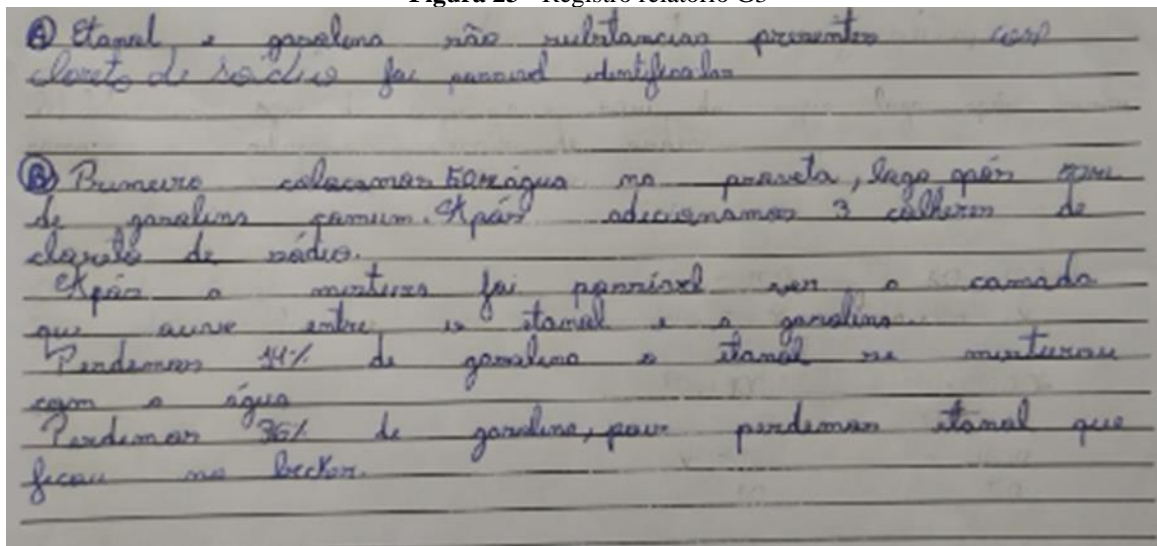 Figura 25 - Registro relatório G5
A) Etanol e gasolina são substancias presentes com
cloreto de sódio foi possivel identificalas
B) Primeiro colocamos 50ml água na proveta, logo após 50ml
de gasolina comum. Após adicionamos 3 colheres de
cloreto de sódio.
Após a mistura foi possível ver a camada
que ouve entre o etanol e a gasolina
Perdemos 14% de gasolina o etanol se misturou
com a água
Perdemos 36% de gasolina, pois perdemos etanol que
ficou no becker.